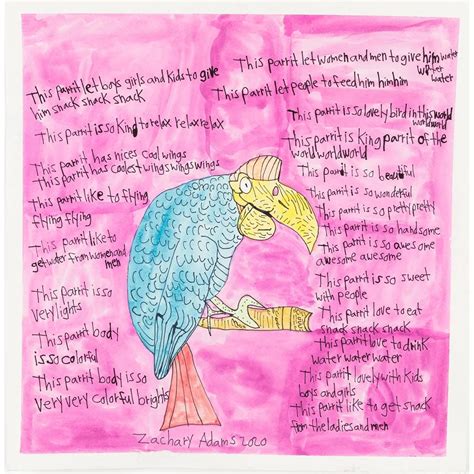 This parrit let boys girls and kids to give
him snack snack snack
This parrit is so Kind to relax relax relax
This parrit has nices cool wings
This parrit has coolest wings wings wings
This parrit like to flying
flying flying
This parrit like to
get water from women and
men
This parrit is so
very lights
This parrit body
is so colorful
This parrit body is so
very very colorful brights
This parrit let women and men to give him water
water
water
This parrit let people to feed him himhim
This parrit is so lovely bird in this world
worldworld
This parrit is King parrit of the
world world world
This parrit is so beautiful
This parrit is so wonderful
This parrit is so pretty pretty
This parrit is so handsome
This parrit is so awesome
awesome awesome
This parrit is so sweet
with people
This parrit love to eat
snack snack snack
This parrit love to drink
water water water
This parrit lovely with Kids
boys and girls
This parrit like to get snack
from the ladies and men
Zachary Adams 2020